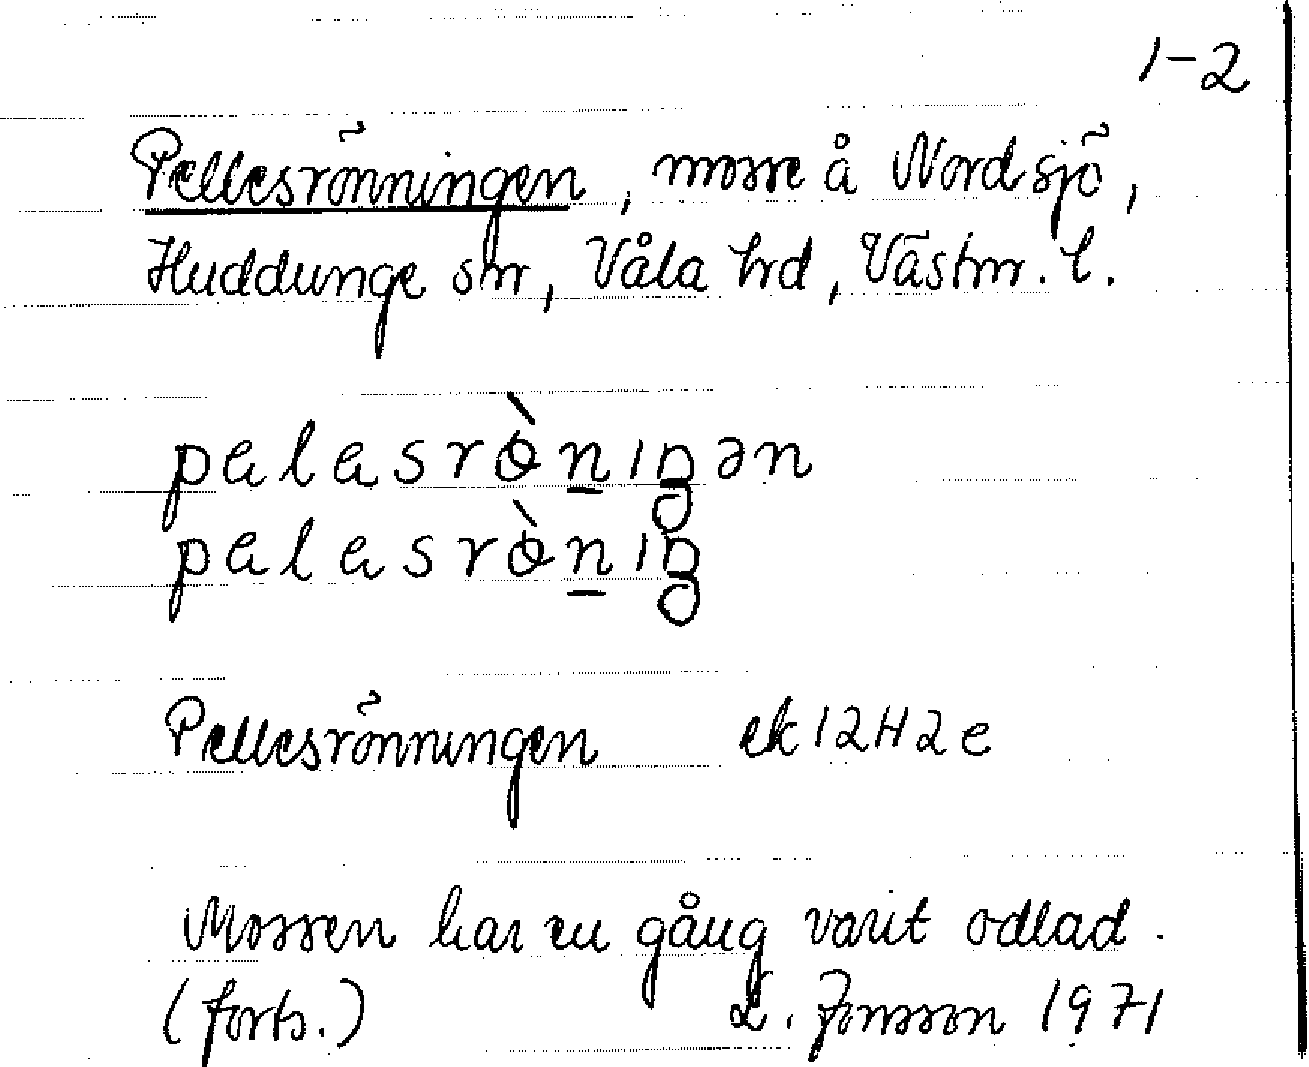 1-2
Pellesrönningen, mosse å Nordsjö,
Huddunge sn, Våla hrd, Västm. l.
pɑlɑsrɵ̀n̲ıŋən
pɑlɑsrɵ̀n̲ıŋ
Pellesrönningen ek 12H2e
Mossen har en gång varit odlad.
(forts.) L. Jonsson 1971